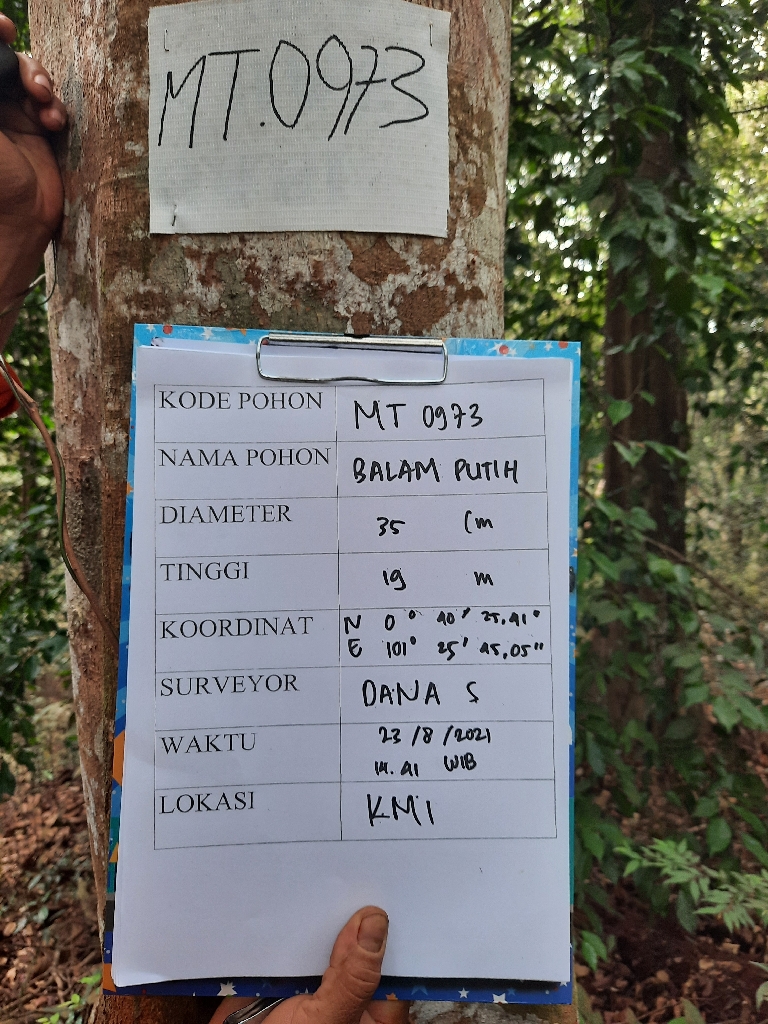 MT.0973
KODE POHON MT 0973
NAMA POHON BALAM PUTIH
DIAMETER 35 cm
TINGGI 19 m
KOORDINAT N 0° 40' 25.41"
E 101° 25' 45.05"
SURVEYOR DANA S
WAKTU 23/8/2021
14.41 WIB
LOKASI KMI